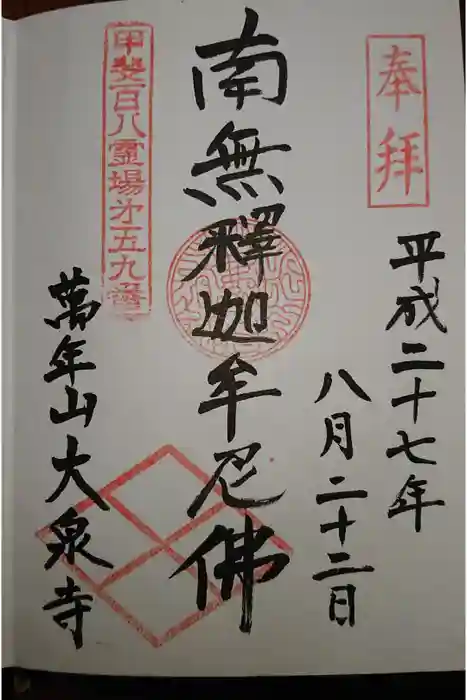 奉拝
平成二十七年
八月二十二日
南無釋迦牟尼佛
甲斐百八霊場第五九番
萬年山大泉寺